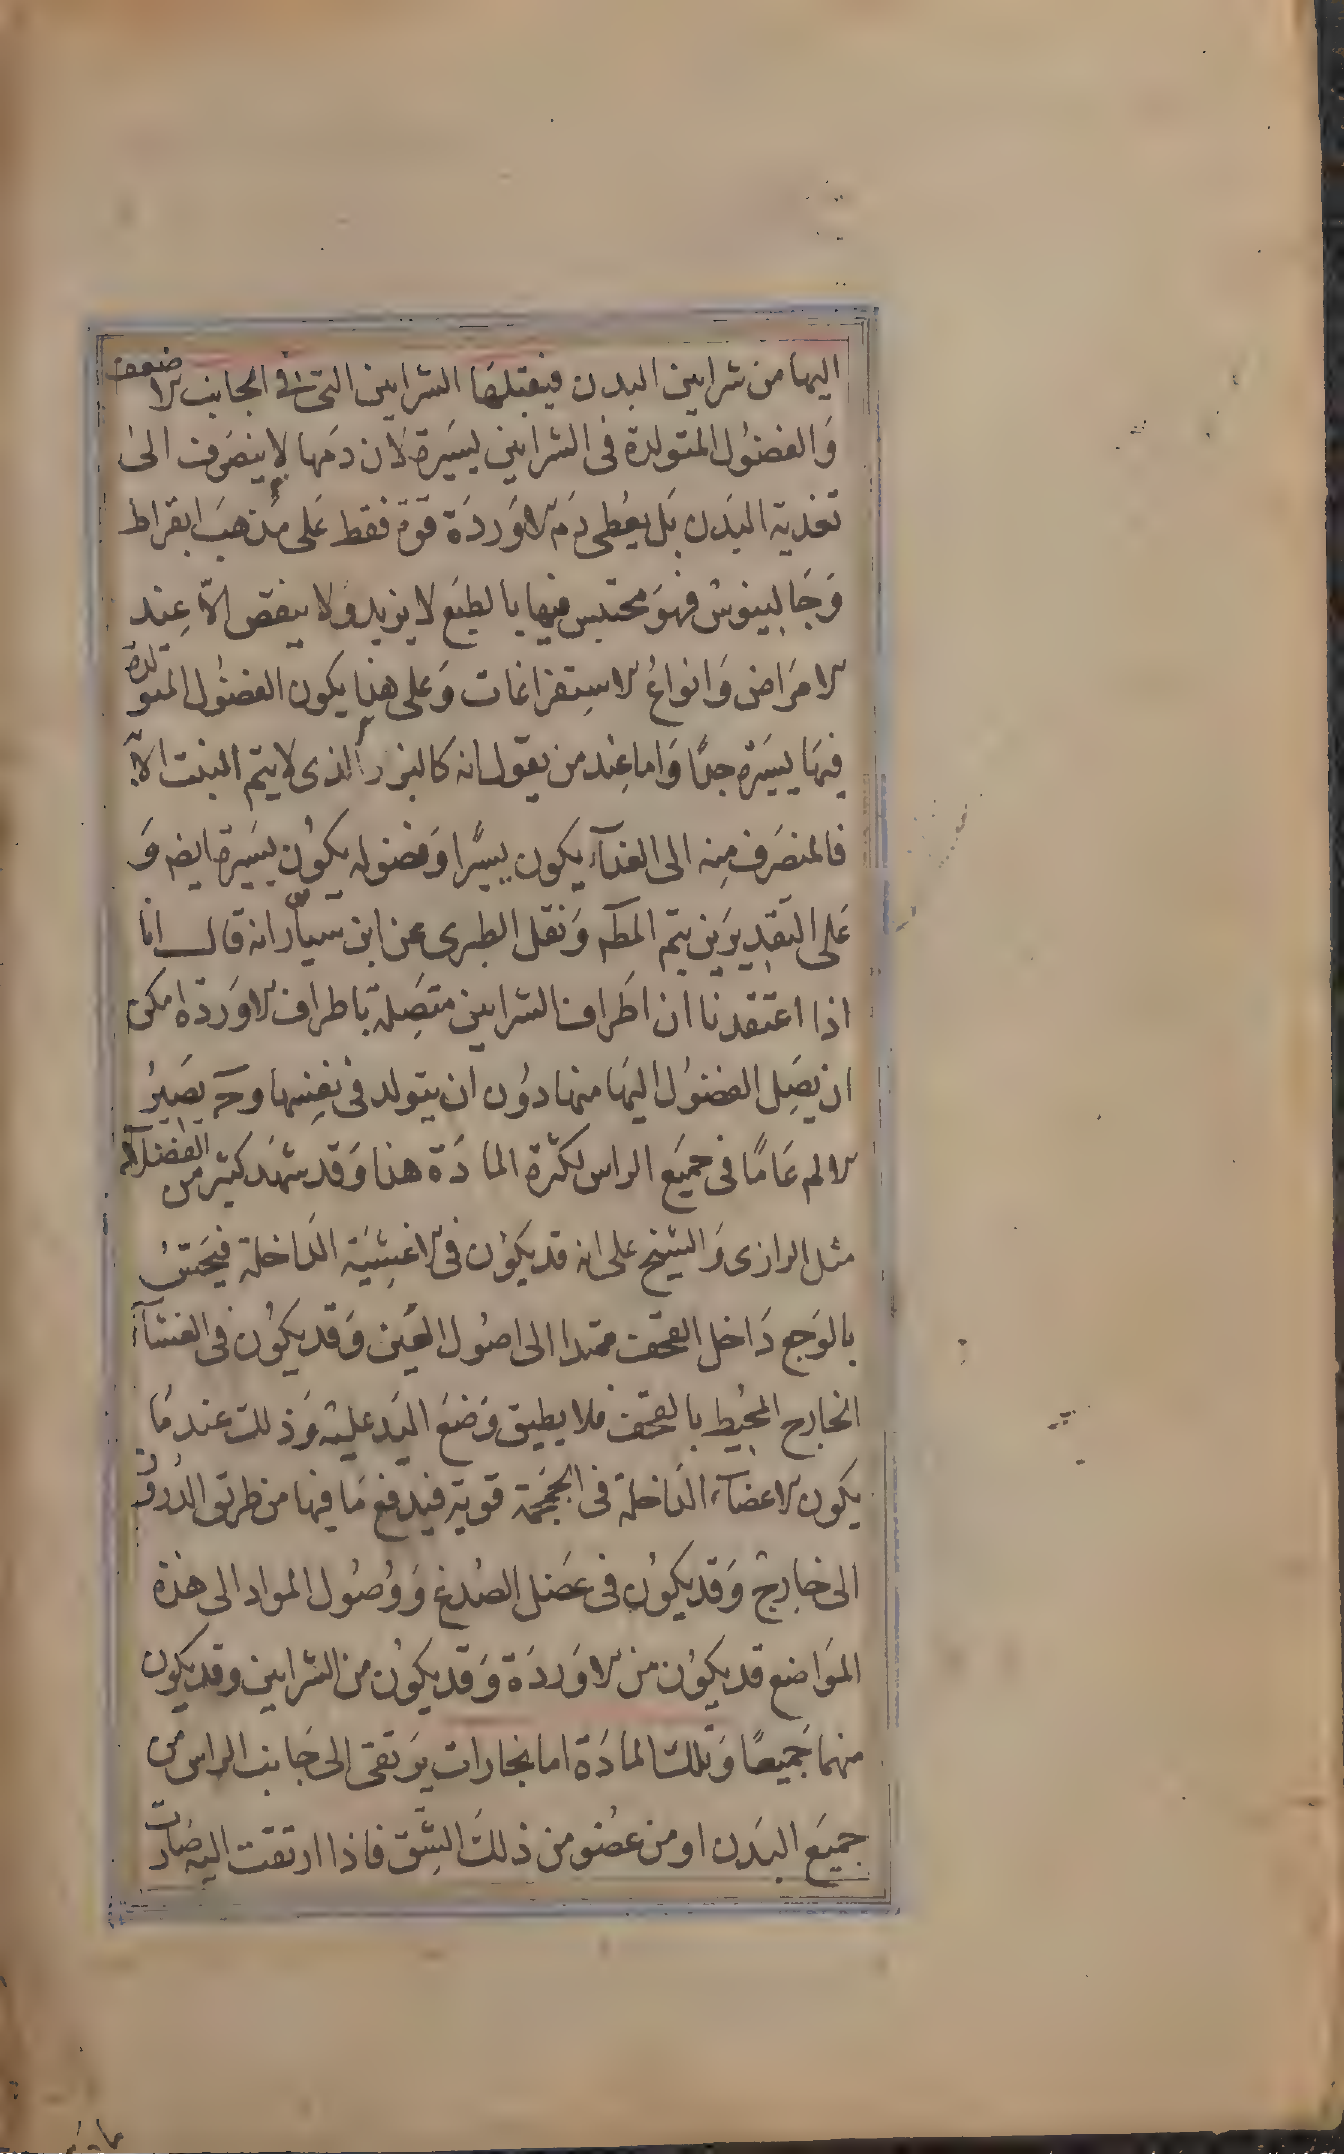 اليها من شرايين البدن فيقبلها الشرايين التى فى الجانب الاضعف
وَالفضول المتولدة فى الشرايين يسيرة لان دمها لا ينصرف الى
تغذية البدن بل يعطى دم الاوردة قوة فقط على مذهب ابقراط
وَجالينوس فهو محتبس فيها بالطبع لا يزيد ولا ينقص الا عند
الامراض وَانواع الاستفراغات وَعلى هذا يكون الفضول المتولدة
فيها يسيرة جدًا وَاما عند من يقول انه كالبزر الذى لا يتم النبت الا به
فالمنصرف منه الى الغذآء يكون يسيرًا وَفضوله يكون يسيرة ايضم وَ
على التقديرين يتم المطم وَنقل الطبرى عن ابن سيار انه قال انا
اذا اعتقدنا ان اطراف الشرايين متصلة باطراف الاوردة امكن
ان يصل الفضول اليها منها دون ان يتولد فى نفسها وحـ يصير
الالم عامًا فى جميع الراس لكثرة المادة هذا وَقد شهد كثير من الفضلآء
مثل الرازى وَالشيخ على انه قد يكون فى الاغشية الداخلة فيحس
بالوجع داخل القحف ممتدا الى اصول العين وَقد يكون فى الغشآء
الخارج المحيط بالقحف فلا يطيق وضع اليد عليه وَذلك عند ما
يكون الاعضآء الداخلة فى الجمجمة قوية فيدفع ما فيها من طريق الدروز
الى خارج وَقد يكون فى عضل الصدغ وَوصول المواد الى هذه
المواضع قد يكون من الاوردة وَقد يكون من الشرايين وقد يكون
منهما جميعًا وَتلك المادة اما بخارات يرتقى الى جانب الراس من
جميع البدن او من عضو من ذلك الشق فاذا ارتقت اليه صارت